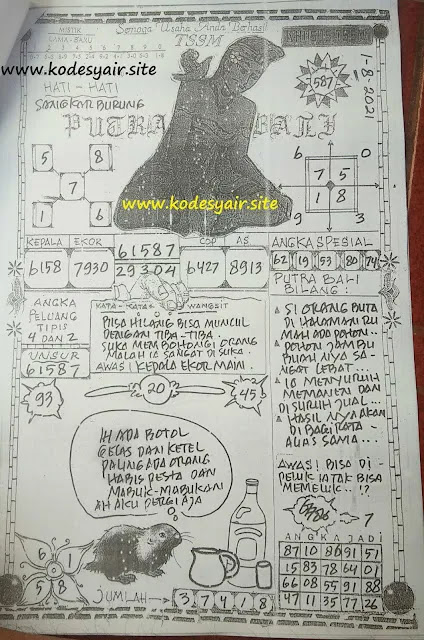 Semoga Usaha Anda Berhasil
MISTIK
LAMA - BARU
TSSM
www.kodesyair.site
HATI - HATI
SANGKAR BURUNG
587
1-8-2021
PUTRA BALI
5 8
7
1 6
www.kodesyair.site
6 0
7 5
1 8
9 3
KEPALA EKOR
6158 7930
61587
29304
COP AS
6427 8913
ANGKA SPESIAL
62 19 53 80 74
ANGKA
PELUANG
TIPIS
4 DAN 2
UNSUR
61587
KATA - KATA WANGSIT
BISA HILANG BISA MUNCUL
DENGAN TIBA-TIBA.
SUKA MEMBOHONGI ORANG
MALAH IA SANGAT DI SUKA.
AWAS! KEPALA EKOR MAIN.
PUTRA BALI
BILANG:
SI ORANG BUTA
DI HALAMAN RU
MAH ADA POHON.
POHON JAMBU
BUAH NYA SA-
NGAT LEBAT...
IA MENYURUH
MEMANEN DAN
DI SURUH JUAL...
HASIL NYA AKAN
DI BAGI RATA
ALIAS SAMA...
93
20
45
IH ADA BOTOL
GELAS DAN KETEL
PALING ADA ORANG
HABIS PESTA DAN
MABUK-MABUKAN
AH AKU PERGI AJA
AWAS! BISA DI-
PELUK IA TAK BISA
MEMELUK..!?
7
6 1
5 8
JUMLAH
3 7 4 1 8
ANGKA JADI
87 10 80 91 51
15 83 78 64 01
66 08 55 91 88
47 11 35 77 26